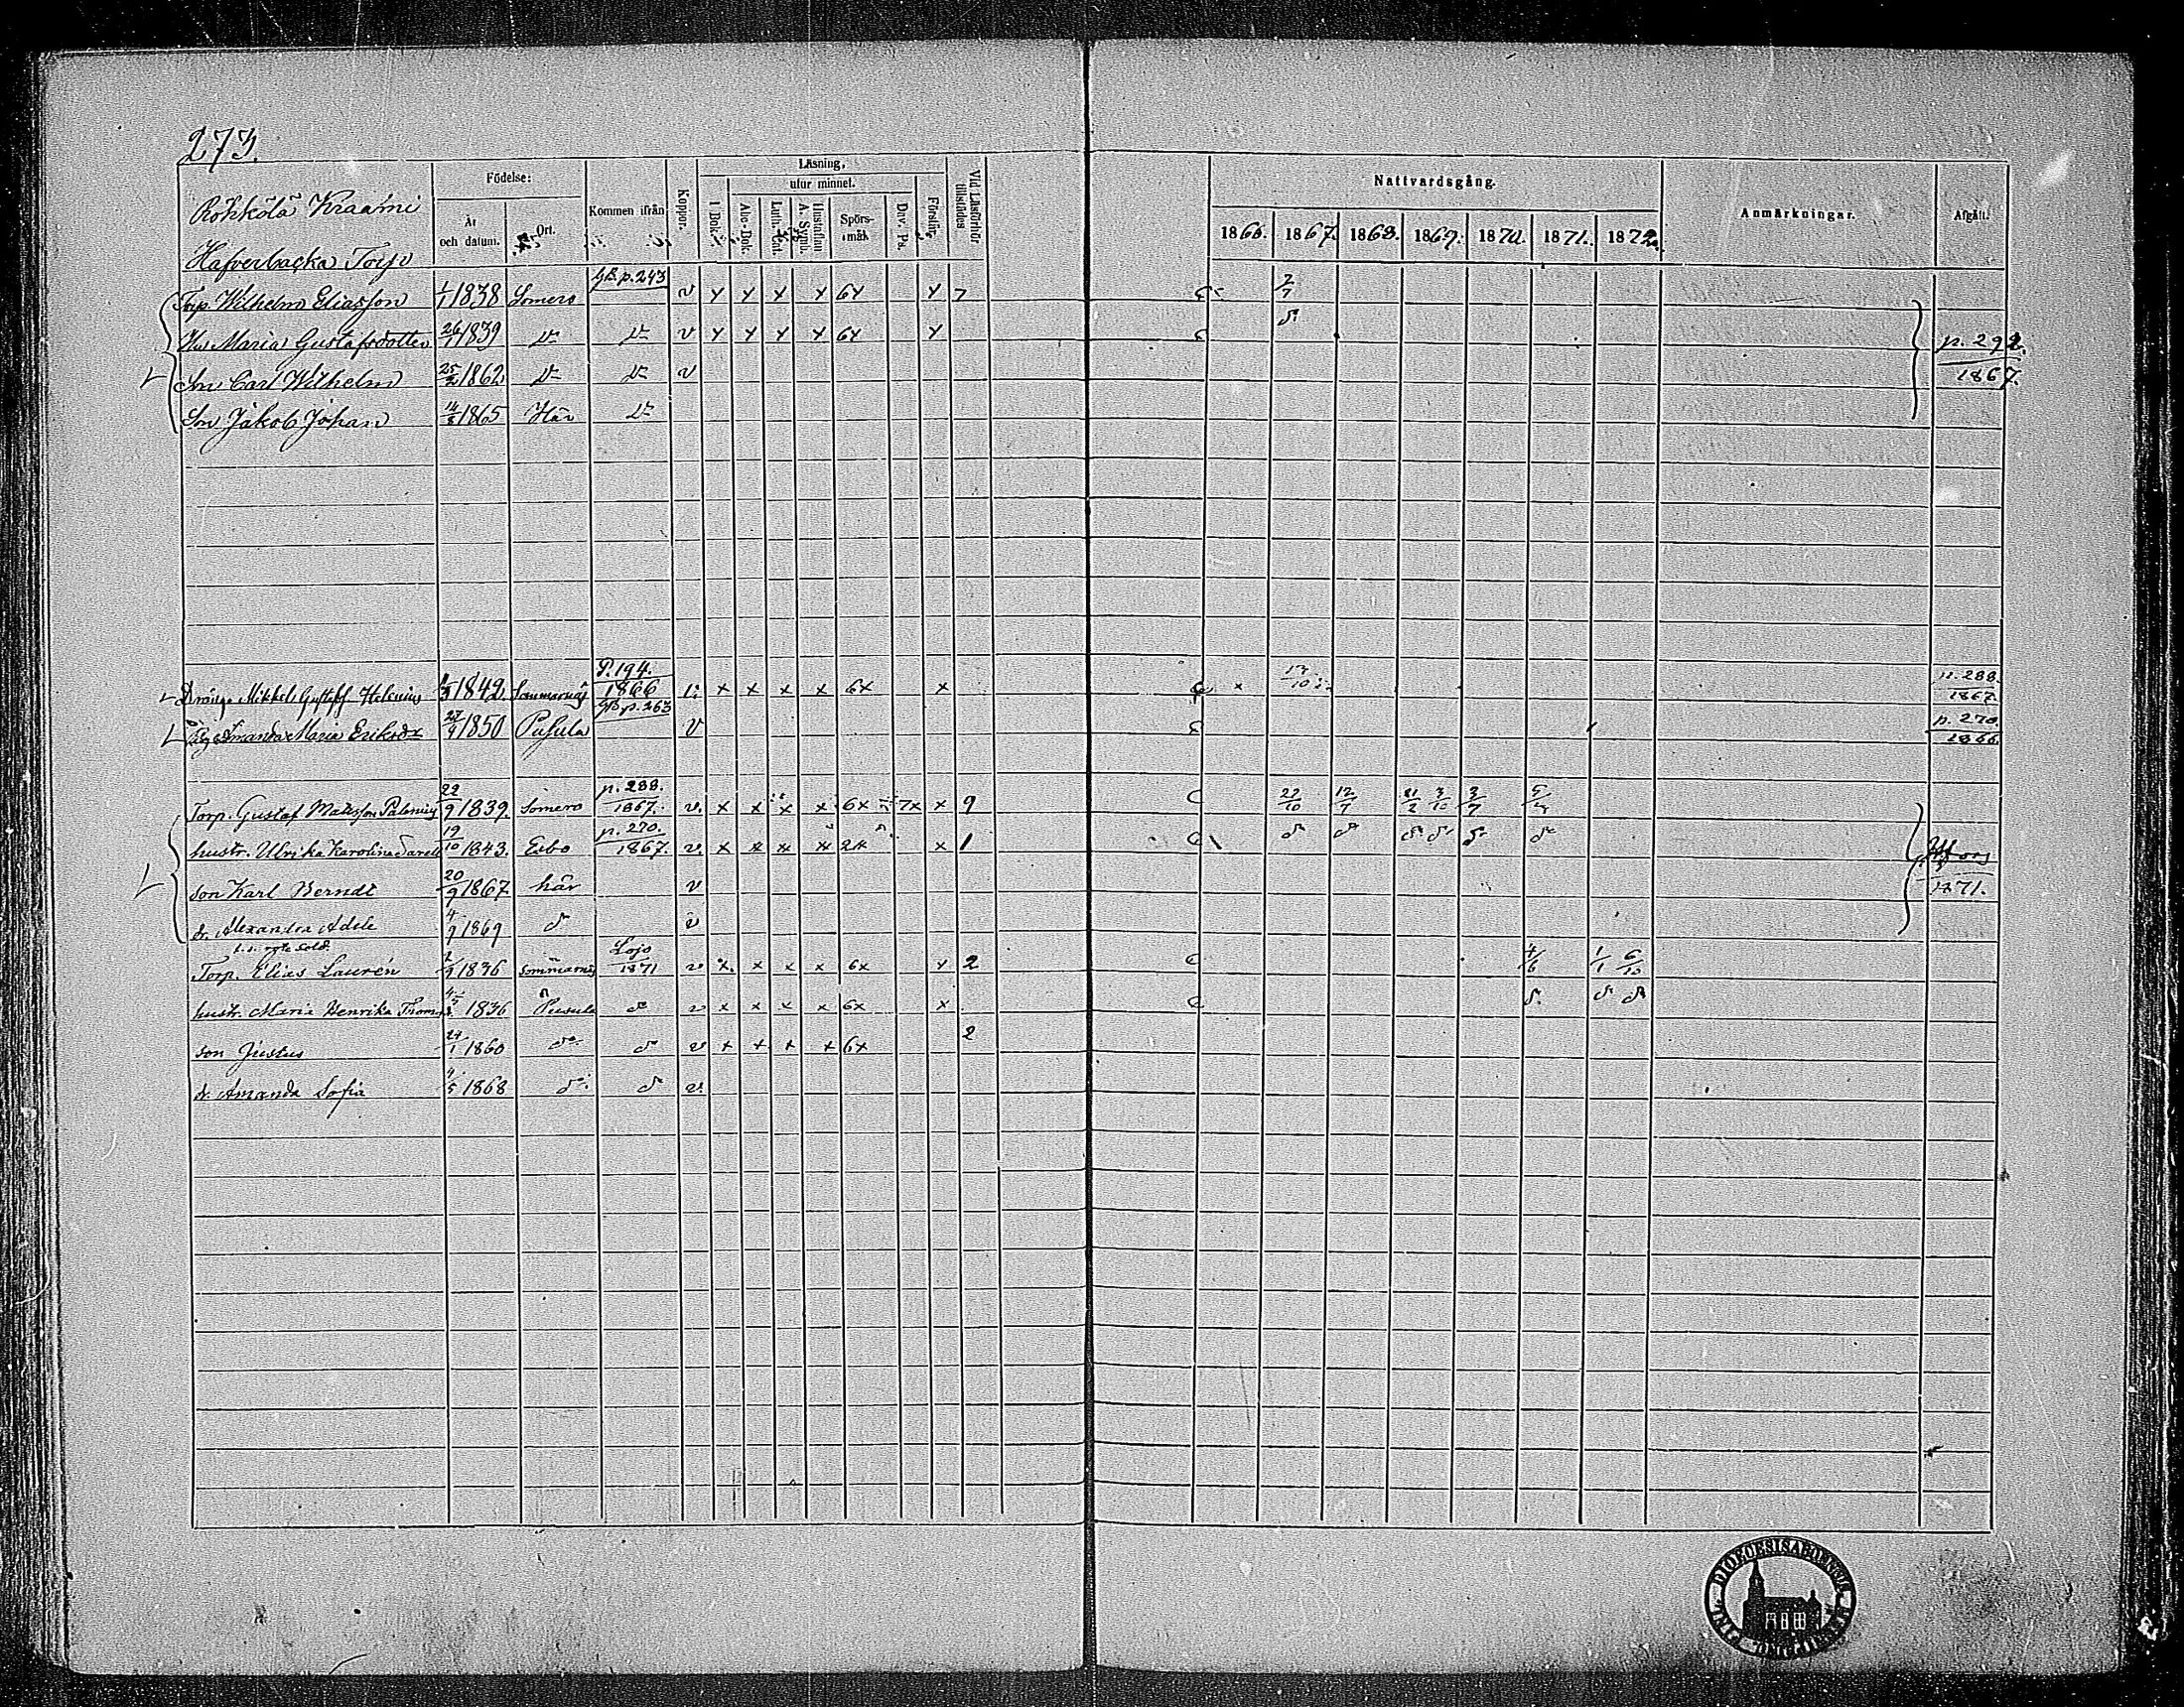 273.
Röhkölä Kraami
Hafverbacka Torp
Födelse:
År och datum.
Ort.
Kommen ifrån
Koppor.
Läsning,
I Bok.
utur minnet.
Abc-Bok.
Luth. Kat.
Hustaflan A. Symb.
Spörs-mål.
Dav. Ps.
Förstår.
Vid Läsförhör tillstädes
Nattvardsgång.
1866. 1867. 1868. 1869. 1870. 1871. 1872.
Anmärkningar.
Afgått.
Torp. Wilhelm Eliasson 1/1 1838 Somero GB. p. 243 v x x x x 6x x 7 2/7
Hu Maria Gustafsdotter 26/1 1839 D:o D:o v x x x x 6x x d:o p. 292. 1867.
Son Carl Wilhelm 25/2 1862 D:o D:o v
Son Jakob Johan 1865 Här D:o
Dräng Mikkel Gustafss. Helenius 1842. Sommarnäs P. 194. 1866 x x x x 6x x p. 288. 1867.
Amanda Maria Eriksdr 1850 Pusula GB p. 263 v p. 270. 1866.
Torp. Gustaf Matsson Palenius 22/9 1839. Somero p. 288. 1867. v. x x x x 6x 7x x 9 22/10 12/7 21/2 3/10 3/7
hustr. Ulrika Karolina 19/10 1843. p. 270. 1867. v. x x x x 2x x 1 d:o d:o d:o d:o d:o d:o H:fors 1871.
son Karl Berndt 20/9 1867 här v
d. Alexandra Adele 4/9 1869 d:o v
Torp. Elias Laurén 1836 Sommarnäs Lojo 1871 v x. x x x 6x x 2 1/1 6/10
hustr. Maria Henrika Thom. 1836 Pusula d:o v x x x x 6x x d:o d:o d:o
son Justus 24/1 1860 d:o d:o v x x x x 6x 2
d. Amanda Sofia 4/5 1868 d:o d:o v.